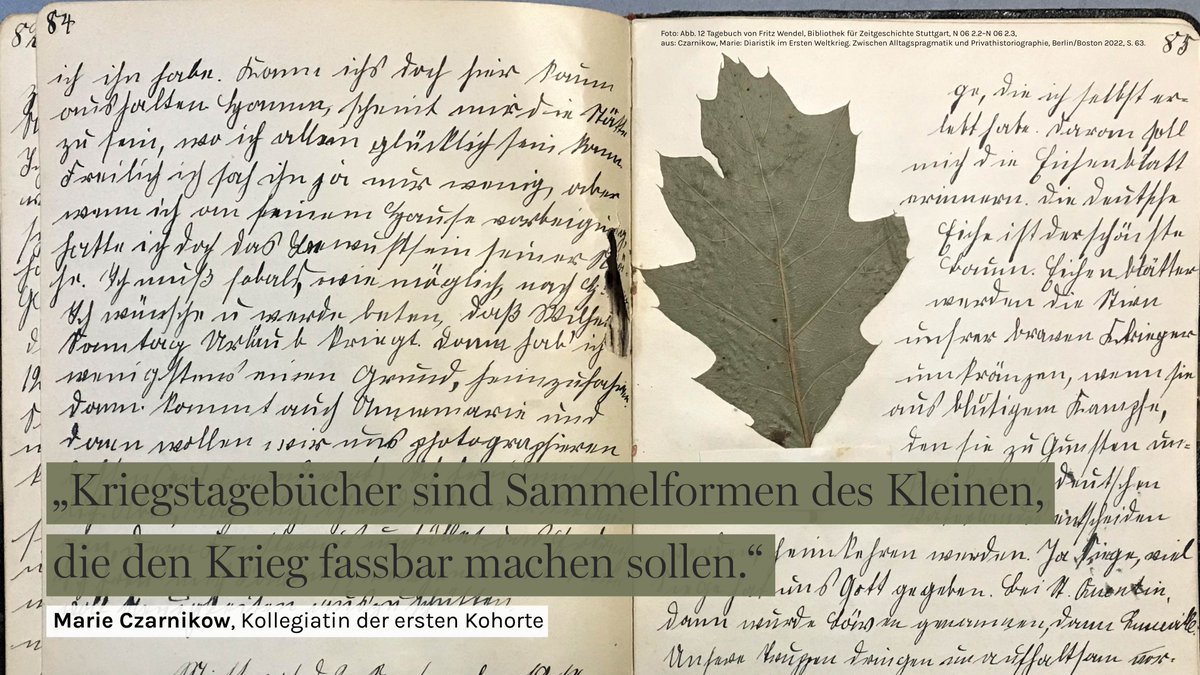 84
ich ihn habe. Kann ichs doch hier kaum
aushalten. Hamm, scheint mir die Stätte
zu sein, wo ich allein glücklich sein kann.
Freilich ich sah ihn ja nur wenig, aber
wenn ich an seinem Hause vorbeiging,
hatte ich doch das Bewustsein seiner
Ich muß sobald, wie möglich, nach
Ich wünsche u werde beten, daß Wilhelm
Sonntag Urlaub kriegt. Dann hab' ich
wenigstens einen Grund, heimzufahren.
Dann kommt auch Annemarie und
dann wollen wir uns photographieren
Foto: Abb. 12 Tagebuch von Fritz Wendel, Bibliothek für Zeitgeschichte Stuttgart, N 06 2.2–N 06 2.3,
aus: Czarnikow, Marie: Diaristik im Ersten Weltkrieg. Zwischen Alltagspragmatik und Privathistoriographie, Berlin/Boston 2022, S. 63.
85
ge, die ich selbst er-
lebt habe. Daran soll
mich die Eichenblatt
erinnern. Die deutsche
Eiche ist der schönste
Baum. Eichenblätter
werden die Stirn
unsrer braven Krieger
umkränzen, wenn sie
aus blutigem Kampfe,
den sie zu Gunsten un-
deutschen
entscheiden
heimkehren werden. Ja Siege, viel
uns Gott gegeben. Bei St. Quentin,
dann wurde Löwen genommen, dann
Unsere Truppen dringen unaufhaltsam vor-
„Kriegstagebücher sind Sammelformen des Kleinen,
die den Krieg fassbar machen sollen.“
Marie Czarnikow, Kollegiatin der ersten Kohorte